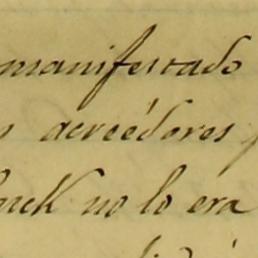 manifestado
acreédores
no lo era